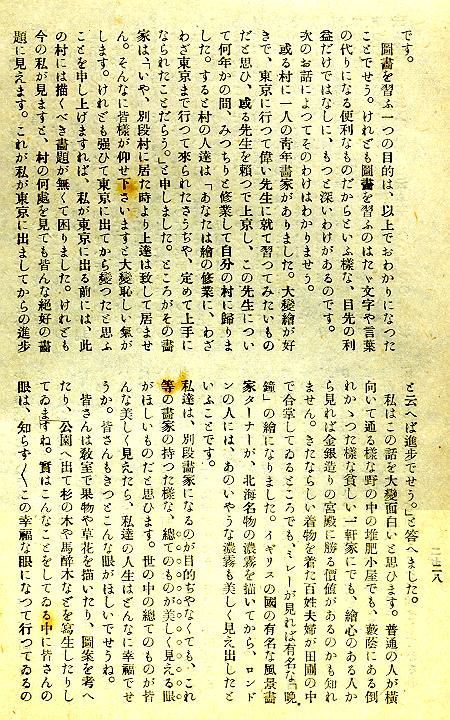 です。
圖畫を習ふ一つの目的は、以上でおわかりになつた
ことでせう。けれども圖畫を習ふのはたゞ文字や言葉
の代りになる便利なものだからといふ樣な、目先の利
益だけではなしに、もつと深いわけがあるのです。
次のお話によつてそのわけはわかりませう。
或る村に一人の靑年畫家がありました。大變繪が好
きで、東京に行つて偉い先生に就て習つてみたいもの
だと思ひ、或る先生を賴つて上京し、この先生につい
て何年かの間、みつちりと修業して自分の村に歸りま
した。すると村の人達は「あなたは繪の修業に、わざ
わざ東京まで行つて來られたさうぢや、定めて上手に
なられたことだらう。」と申しました。ところがその畫
家は「いや、別段村に居た時より上達は致して居ませ
ん。そんなに皆樣が仰せ下さいますと大變恥しい氣が
します。けれども强ひて東京に出てから變つたと思ふ
ことを申し上げますれば、私が東京に出る前には、此
の村には描くべき畫題が無くて困りました。けれども
今の私が見ますと、村の何處を見ても皆んな絕好の畫
題に見えます。これが私が東京に出ましてからの進步
と云へば進步でせう。」と答へました。
私はこの話を大變面白いと思ひます。普通の人が橫
向いて通る樣な野の中の堆肥小屋でも、藪蔭にある倒
れかゝつた樣な貧しい一軒家にでも、繪心のある人か
ら見れば金銀造りの宮殿に勝る價値があるのかも知れ
ません。きたならしい着物を着た百姓夫婦が田圃の中
で合掌してゐるところでも、ミレーが見れば有名な「晩
鐘」の繪になりました。イギリスの國の有名な風景畫
家ターナーが、北海名物の濃霧を描いてから、ロンド
ンの人には、あのいやうな濃霧も美しく見え出したと
いふことです。
私達は、別段畫家になるのが目的ぢやなくても、これ
等の畫家の持つた樣な、總てのものが美しく見える眼
がほしいものだと思ひます。世の中の總てのものが皆
んな美しく見えたら、私達の人生はどんなに幸福でせ
うか。皆さんもきつとこんな眼がほしいでせうね。
皆さんは敎室で果物や草花を描いたり、圖案を考へ
たり、公園へ出て杉の木や馬醉木などを寫生したりし
てゐますね。實はこんなことをしてゐる中に皆さんの
眼は、知らず〳〵この幸福な眼になつて行つてゐるの
二三八